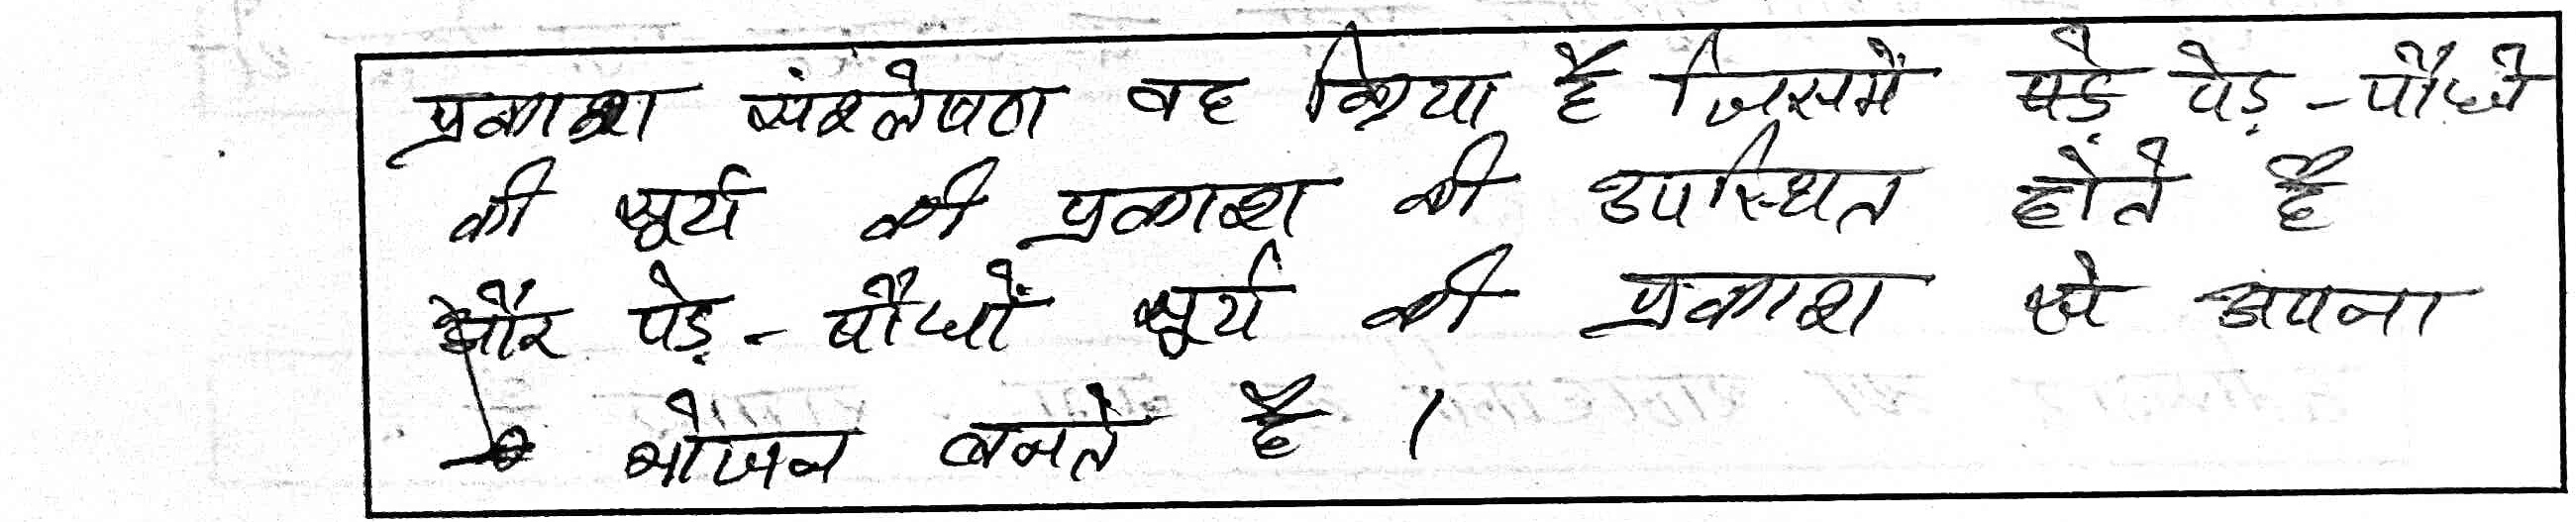 प्रकाश संश्लेषण वह क्रिया है जिसमें पेड़ - पौधे
की सूर्य की प्रकाश की उपस्थित होते है
और पेड़ - पौधों सूर्य की प्रकाश से अपना
भोजन बनते है ।